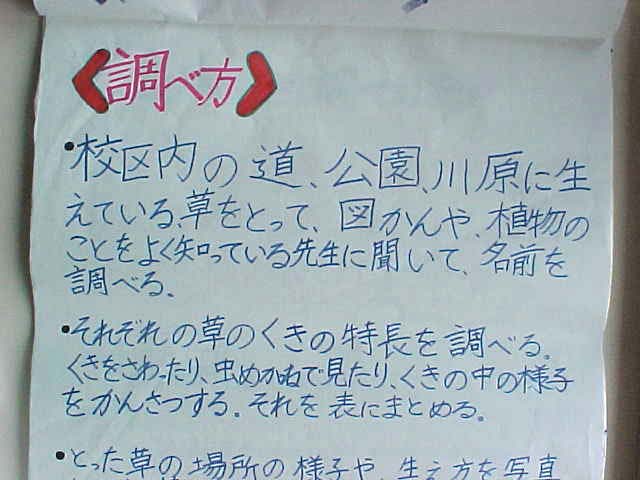 《調べ方》
•校区内の道、公園、川原に生
えている、草をとって、図かんや、植物の
ことをよく知っている先生に聞いて、名前を
調べる。
•それぞれの草のくきの特長を調べる。
くきをさわったり、虫めがねで見たり、くきの中の様子
をかんさつする。それを表にまとめる。
•とった草の場所の様子や、生え方を写真